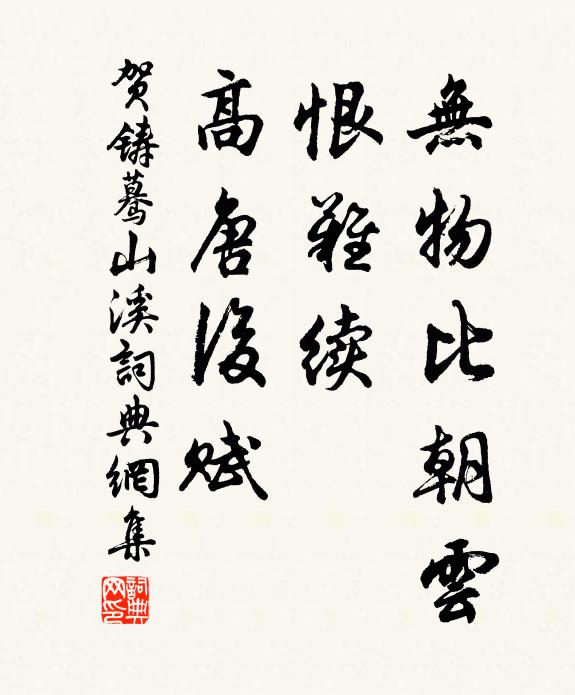 無物比朝雲
恨難续
高唐後赋
贺鑄蓦山溪詞典網集
詞典网印